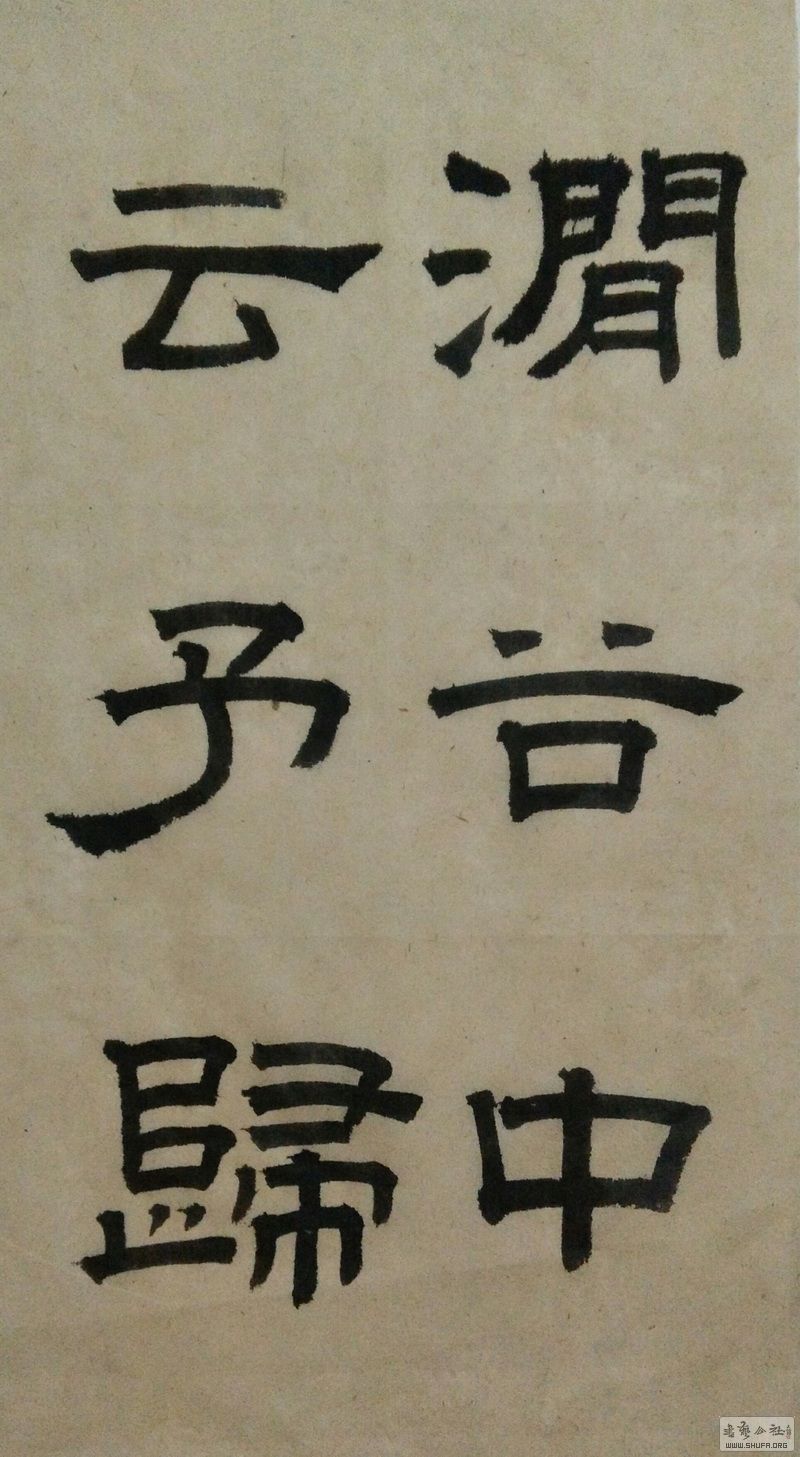 澗谷中
云予歸
書藝公社
WWW.SHUFA.ORG